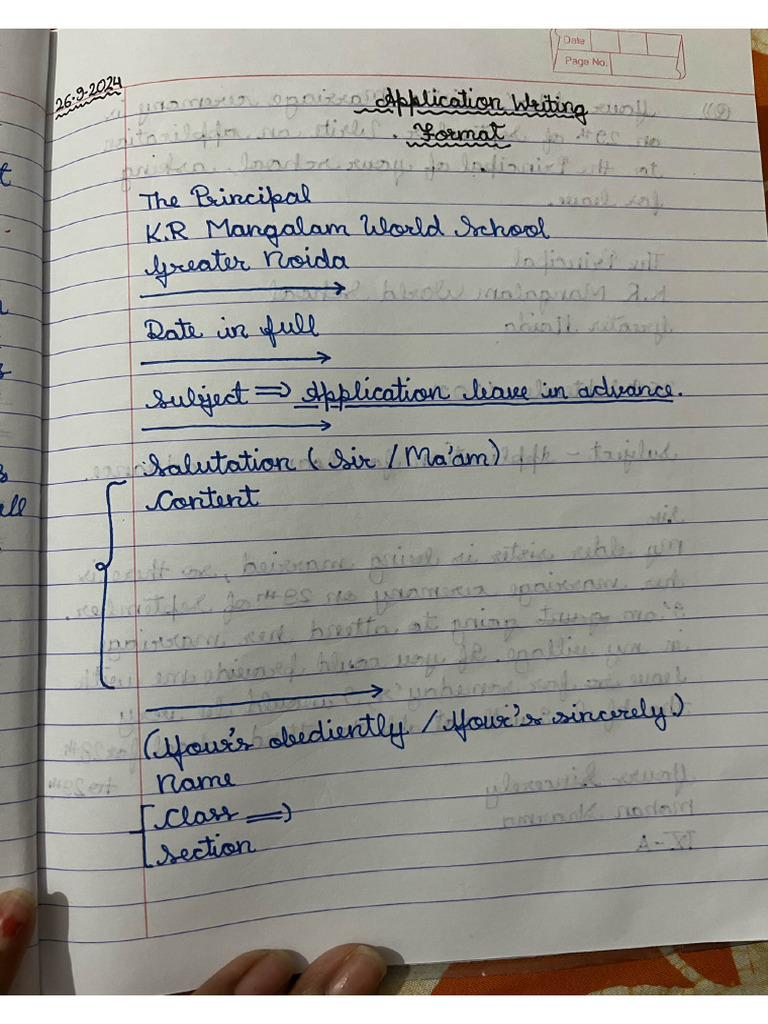 Date
Page No.
26.9.2024
Application Writing
Format
The Principal
K.R Mangalam World School
Greater Noida
Date in full
Subject ⇒ Application leave in advance.
Salutation ( Sir / Ma'am)
Content
(Your's obediently / Your's sincerely)
Name
Class ⇒
Section